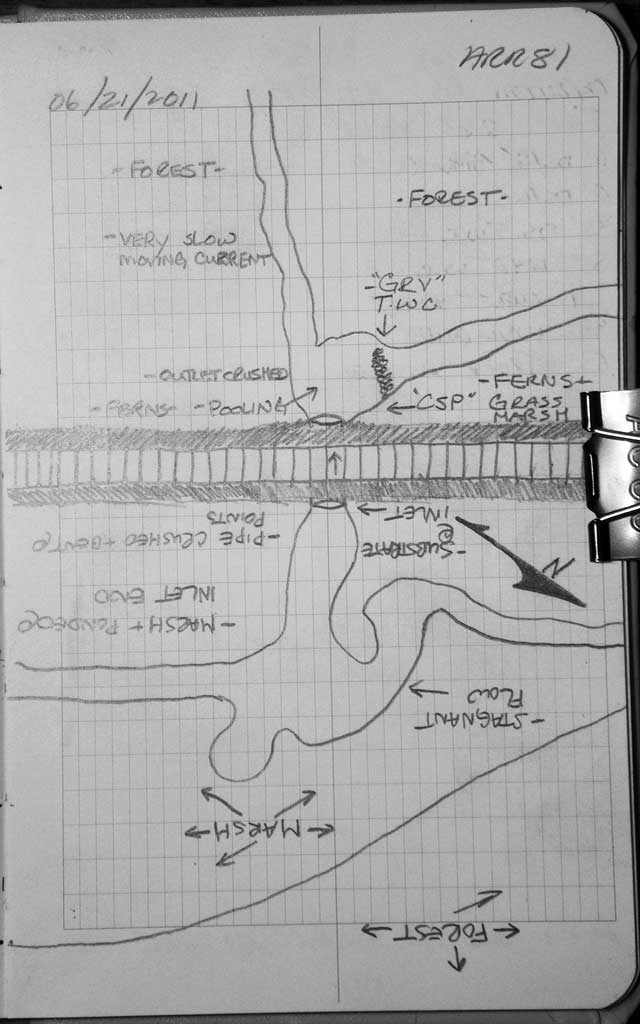 ARR81
06/21/2011
-FOREST-
-FOREST-
-VERY SLOW
MOVING CURRENT
-"GRV"
T.W.C
-OUTLET CRUSHED
-FERNS-
-POOLING
"CSP"
-FERNS+
GRASS
MARSH
INLET
-SUBSTRATE
@
-PIPE CRUSHED +
POINTS
N
-MARSH + PONDED @
INLET END
-STAGNANT
FLOW
MARSH
FOREST